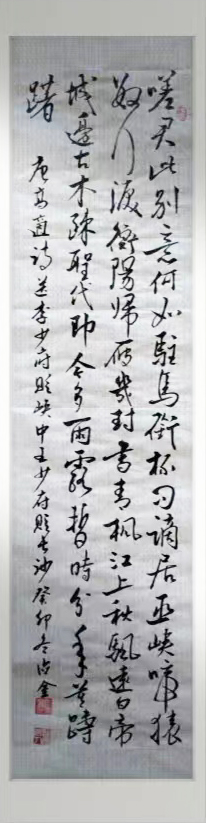 嗟君此别意何如駐馬銜杯问謫居巫峡啼猿
数行淚衡陽帰雁幾封書青楓江上秋颿遠白帝
城邊古木疎聖代即今多雨露暫時分手莫躊
躇
唐高適詩送李少府貶峡中王少府貶長沙 癸卯冬